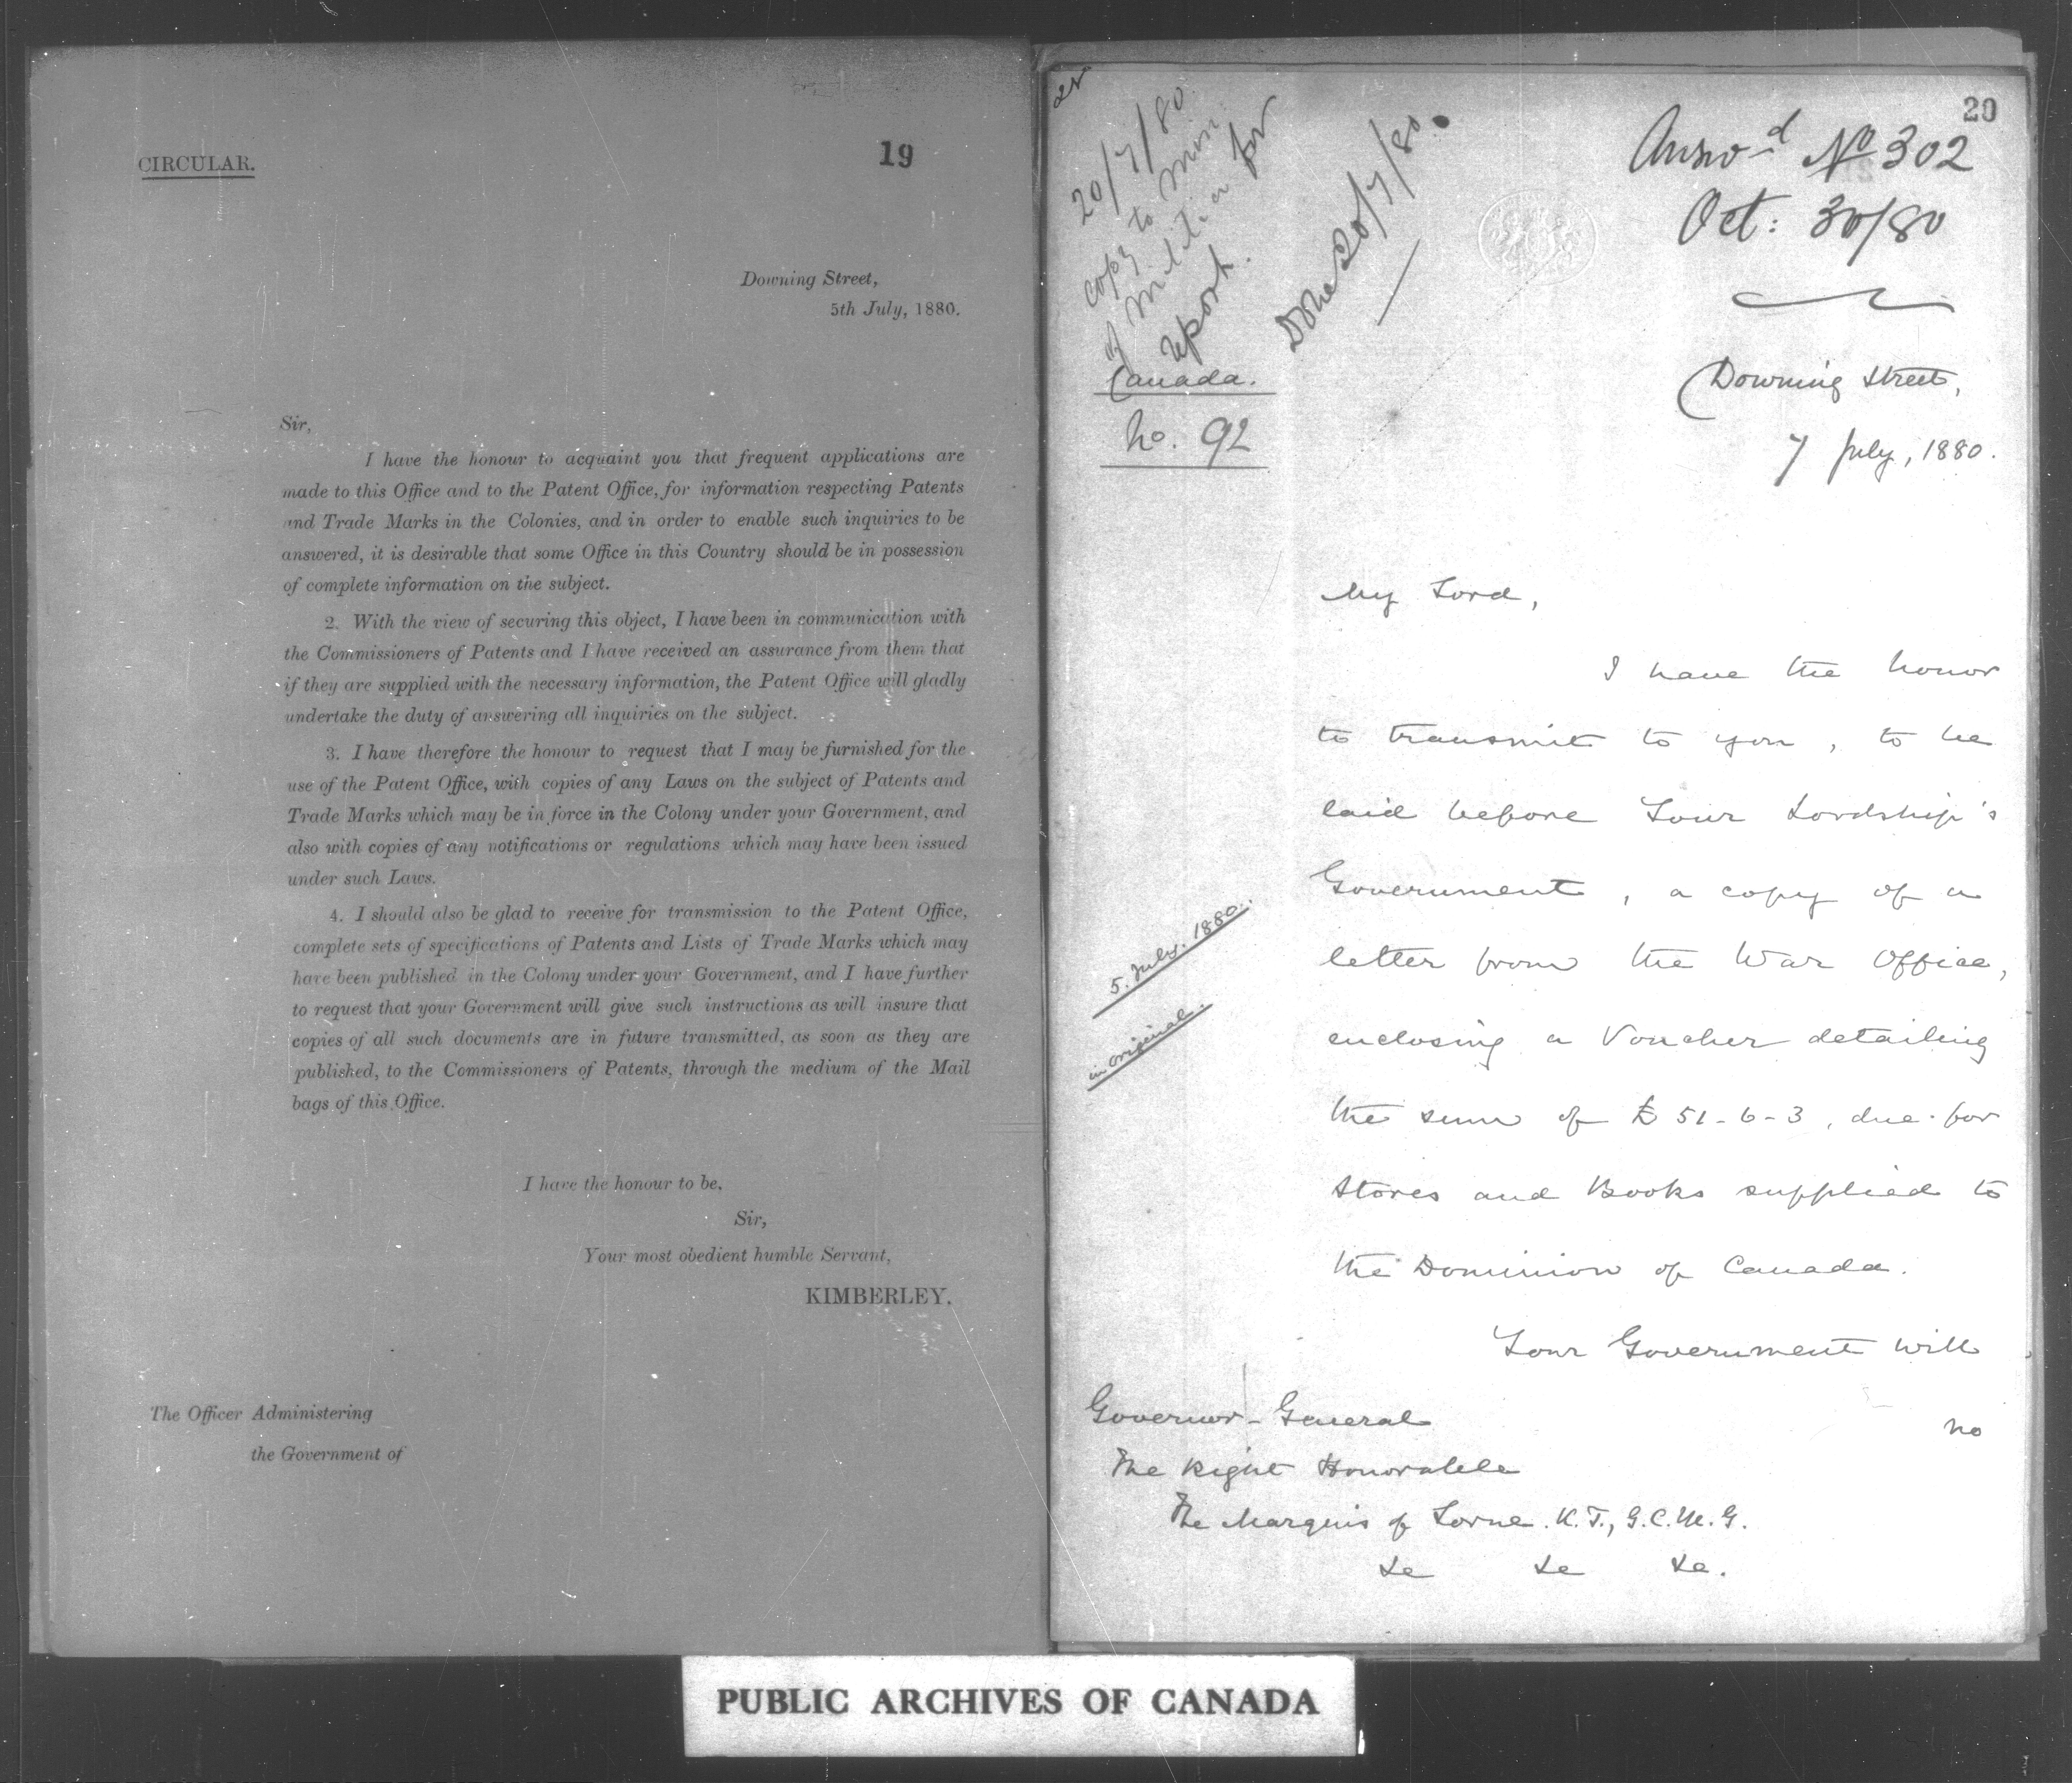 CIRCULAR.
19
Downing Street,
5th July, 1880.
Sir,
I have the honour to acquaint you that frequent applications are
made to this Office and to the Patent Office, for information respecting Patents
and Trade Marks in the Colonies, and in order to enable such inquiries to be
answered, it is desirable that some Office in this Country should be in possession
of complete information on the subject.
2. With the view of securing this object, I have been in communication with
the Commissioners of Patents and I have received an assurance from them that
if they are supplied with the necessary information, the Patent Office will gladly
undertake the duty of answering all inquiries on the subject.
3. I have therefore the honour to request that I may be furnished for the
use of the Patent Office, with copies of any Laws on the subject of Patents and
Trade Marks which may be in force in the Colony under your Government, and
also with copies of any notifications or regulations which may have been issued
under such Laws.
4. I should also be glad to receive for transmission to the Patent Office,
complete sets of specifications of Patents and Lists of Trade Marks which may
have been published in the Colony under your Government, and I have further
to request that your Government will give such instructions as will insure that
copies of all such documents are in future transmitted, as soon as they are
published, to the Commissioners of Patents, through the medium of the Mail
bags of this Office.
I have the honour to be,
Sir,
Your most obedient humble Servant,
KIMBERLEY.
The Officer Administering
the Government of
20
20/7/80
copy to Min
of Militia for
report.
Done 20/7/80.
Answd No 302
Oct: 30/80
Canada.
No. 92
Downing Street,
7 July, 1880.
My Lord,
I have the honor
to transmit to you, to be
laid before Your Lordship's
Government, a copy of a
letter from the War Office,
5. July. 1880.
in original.
enclosing a Voucher detailing
the sum of £51-6-3, due for
Stores and Books supplied to
the Dominion of Canada.
Your Government will
no
Governor-General
The Right Honorable
The Marquis of Lorne. K.T., G.C.M.G.
&c &c &c.
PUBLIC ARCHIVES OF CANADA